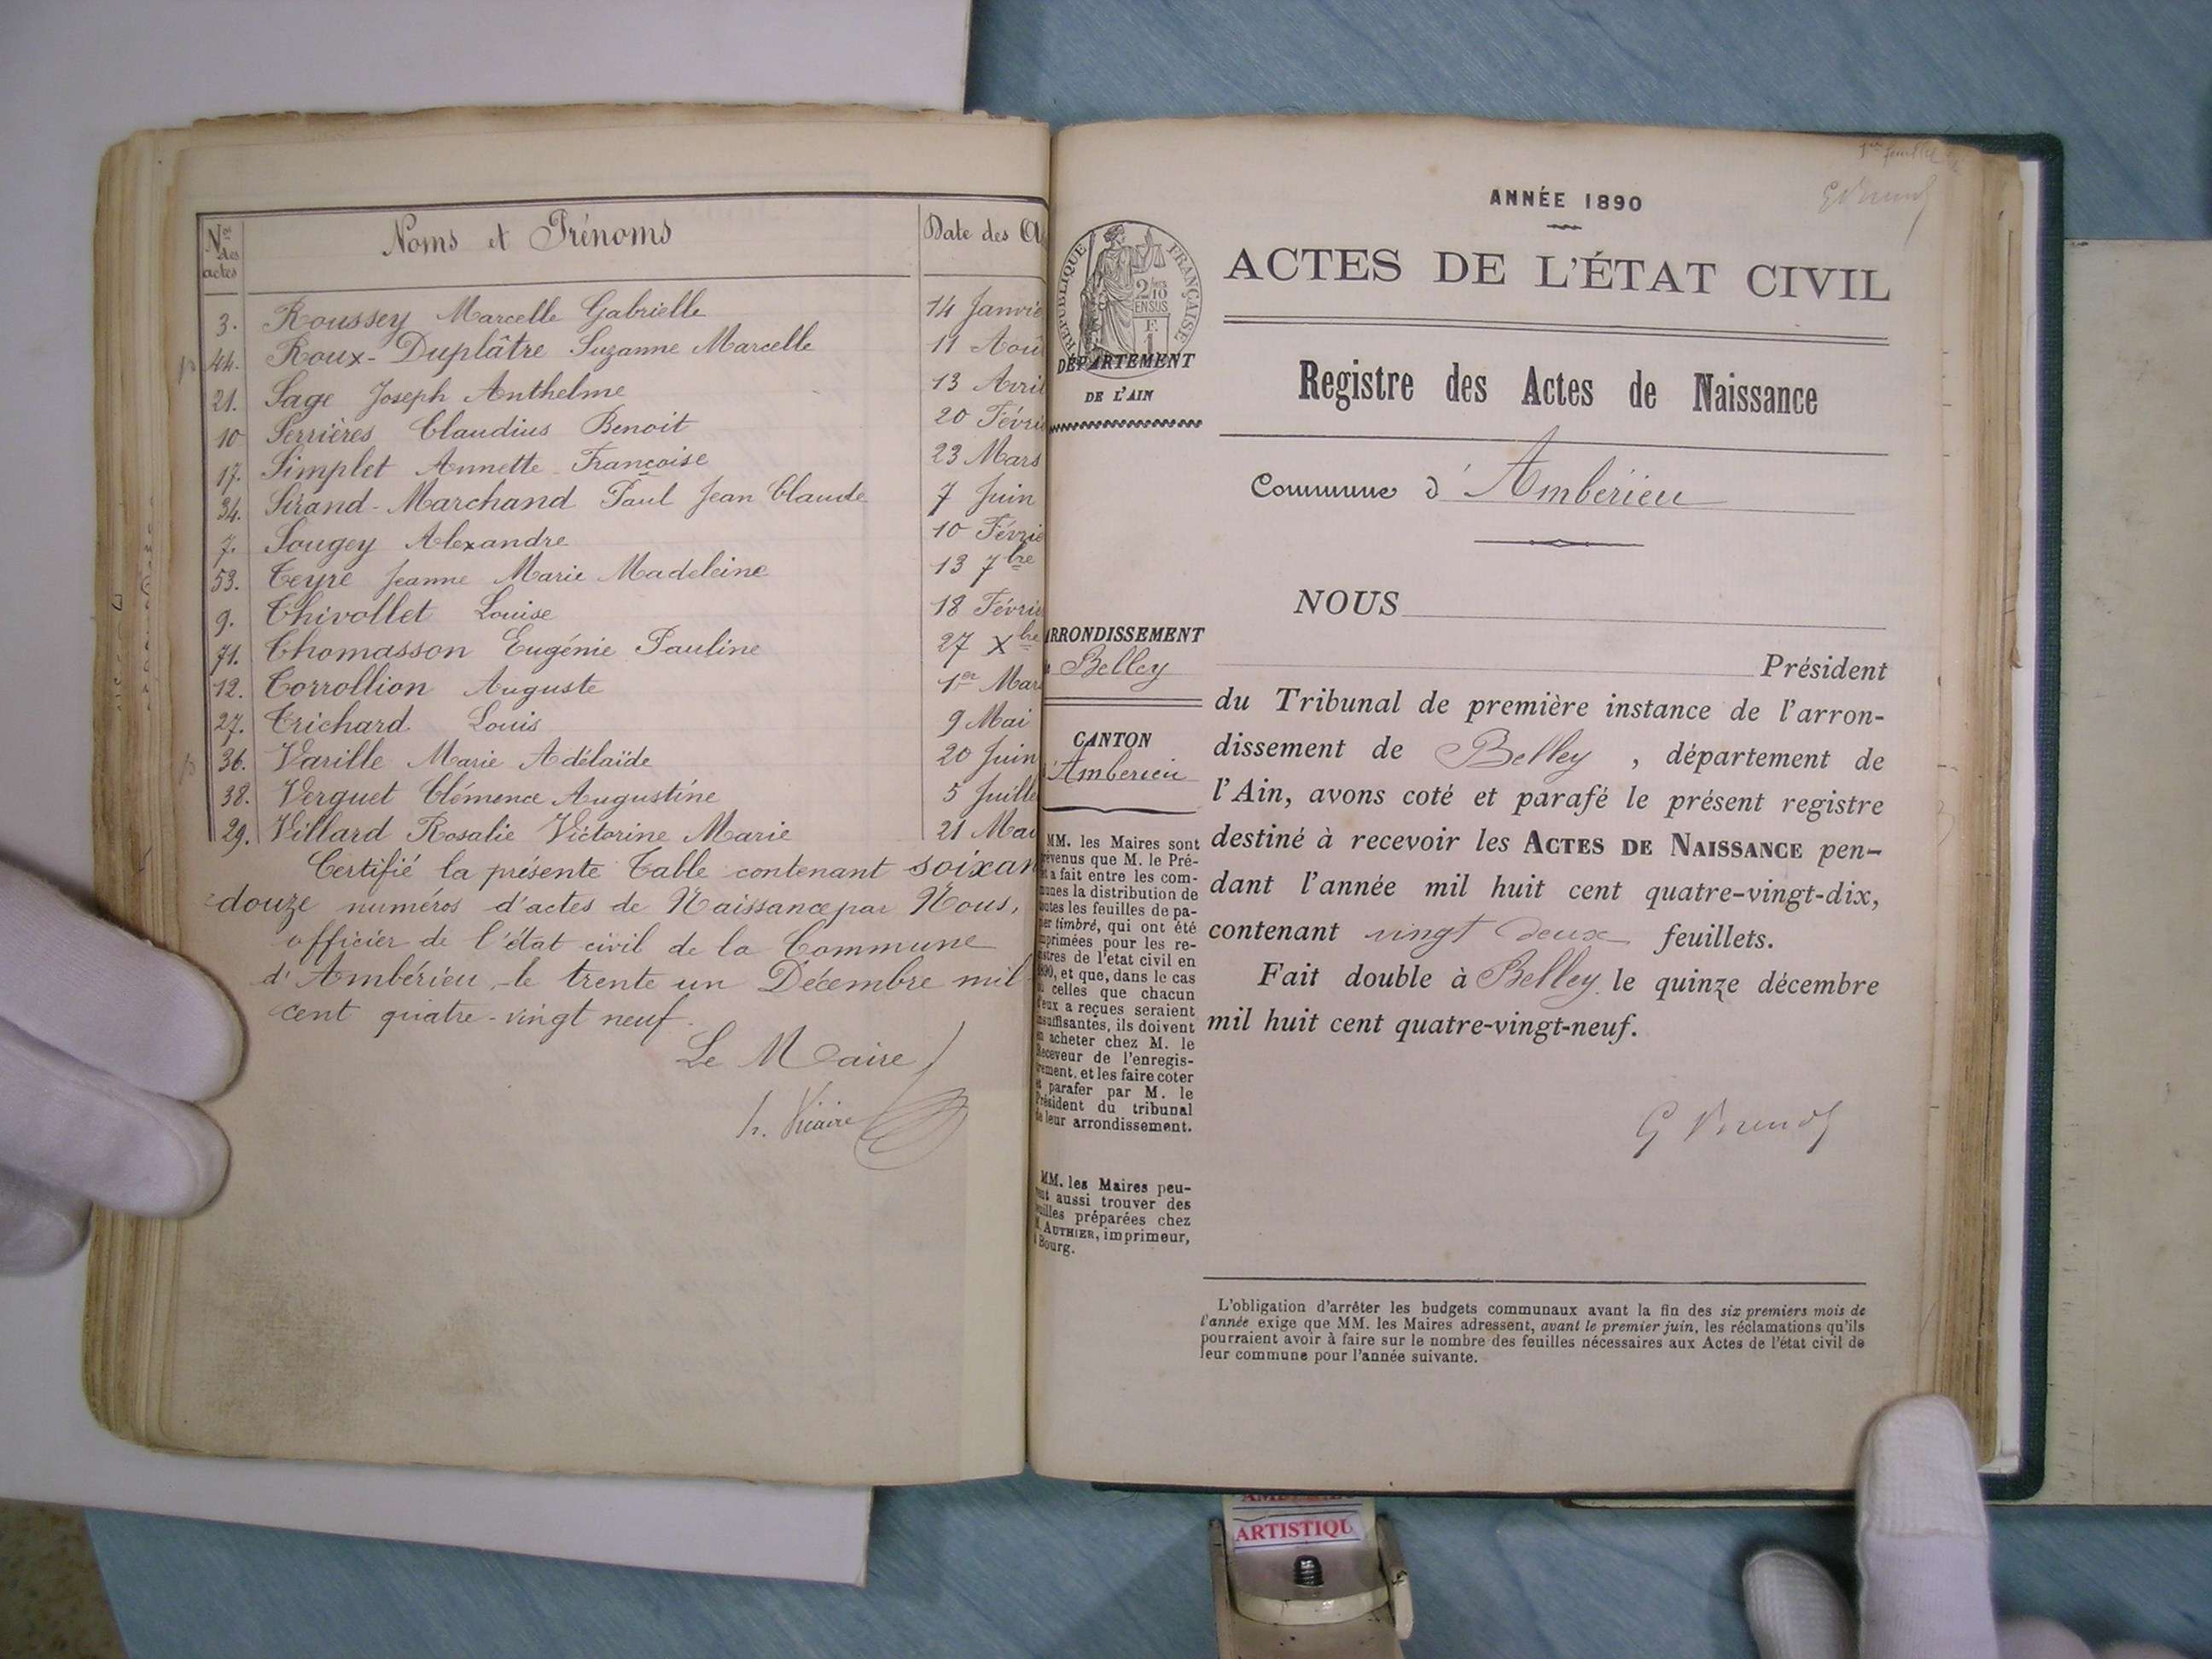 Nos des actes
Noms et Prénoms
Date des A
3. Roussey Marcelle Gabrielle 14 Janvie
44. Roux-Duplâtre Suzanne Marcelle 11 Aoû
21. Sage Joseph Anthelme 13 Avril
10 Serrières Claudius Benoit 20 Févri
17. Simplet Annette Françoise 23 Mars
34. Sirand-Marchand Paul Jean Claude 7 Juin
7. Sougey Alexandre 10 Févrie
53. Teyre Jeanne Marie Madeleine 13 7bre
9. Thivollet Louise 18 Févrie
71. Thomasson Eugénie Pauline 27 Xbre
12. Torrollion Auguste 1er Mar
27. Trichard Louis 9 Mai
36. Varille Marie Adélaïde 20 Juin
38. Verguet Clémence Augustine 5 Juille
29. Villard Rosalie Victorine Marie 21 Mai
Certifié la présente Table contenant soixan
douze numéros d'actes de Naissance par Nous,
officier de l'état civil de la Commune
d'Ambérieu, le trente un Décembre mil
cent quatre-vingt neuf.
Le Maire
h. Vicaire
1er feuillet
ANNÉE 1890
ACTES DE L'ÉTAT CIVIL
RÉPUBLIQUE FRANÇAISE
2/10 EN SUS
F. 1
DÉPARTEMENT
DE L'AIN
Registre des Actes de Naissance
Commune d'Ambérieu
NOUS
ARRONDISSEMENT
Belley
Président
du Tribunal de première instance de l'arron-
dissement de Belley, département de
l'Ain, avons coté et parafé le présent registre
destiné à recevoir les ACTES DE NAISSANCE pen-
dant l'année mil huit cent quatre-vingt-dix,
contenant vingt deux feuillets.
Fait double à Belley le quinze décembre
mil huit cent quatre-vingt-neuf.
CANTON
d'Amberieu
MM. les Maires sont
prévenus que M. le Pré-
et a fait entre les com-
munes la distribution de
toutes les feuilles de pa-
pier timbré, qui ont été
imprimées pour les re-
gistres de l'etat civil en
1890, et que, dans le cas
où celles que chacun
d'eux a reçues seraient
insuffisantes, ils doivent
en acheter chez M. le
Receveur de l'enregis-
trement, et les faire coter
et parafer par M. le
Président du tribunal
de leur arrondissement.
MM. les Maires peu-
vent aussi trouver des
feuilles préparées chez
M. AUTHIER, imprimeur,
à Bourg.
L'obligation d'arrêter les budgets communaux avant la fin des six premiers mois de
l'année exige que MM. les Maires adressent, avant le premier juin, les réclamations qu'ils
pourraient avoir à faire sur le nombre des feuilles nécessaires aux Actes de l'état civil de
leur commune pour l'année suivante.
ARTISTIQU